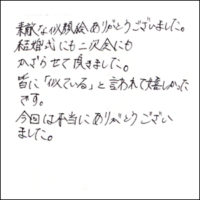 素敵な似顔絵ありがとうございました。
結婚式にも二次会にも
かざらせて頂きました。
皆に「似ている」と言われて嬉しかった
です。
今回は本当にありがとうござい
ました。